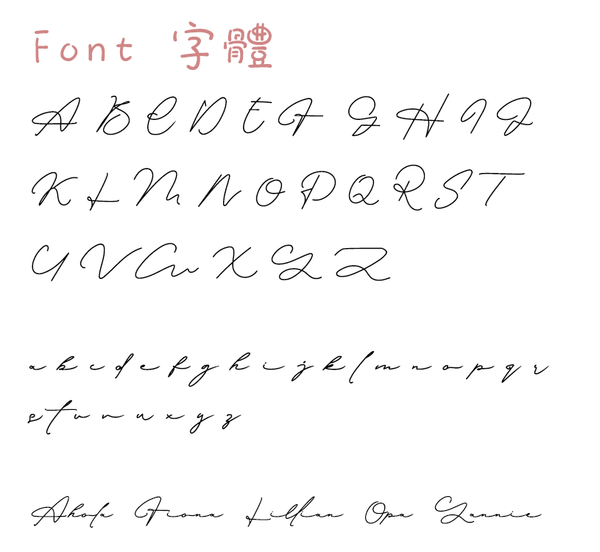 Font 字體
A B C D E F G H I J
K L M N O P Q R S T
U V W X Y Z
a b c d e f g h i j k l m n o p q r
s t u v w x y z
Ahola Fiona Lillian Opu Yannie